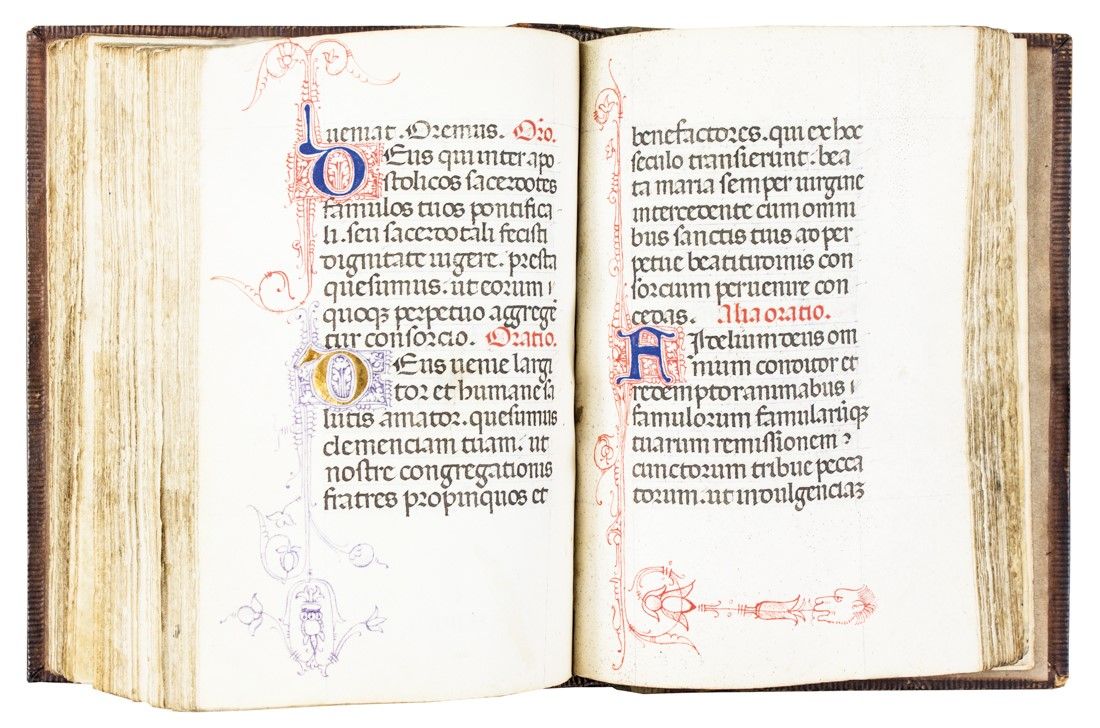 ueniat. Oremus. Oro.
DEus qui inter apo
stolicos sacerdotes
famulos tuos pontifica
li. seu sacerdotali fecisti
dignitate uigere. presta
quesumus. ut eorum
quoqz perpetuo aggrege
tur consorcio. Oratio.
DEus uenie largi
tor et humane sa
lutis amator. quesumus
clemenciam tuam. ut
nostre congregationis
fratres propinquos et
benefactores. qui ex hoc
seculo transierunt. bea
ta maria semper uirgine
intercedente cum omni
bus sanctis tuis ad per
petue beatitudinis con
sorcium peruenire con
cedas. Alia oratio.
FIdelium deus om
nium conditor et
redemptor animabus
famulorum famularuqz
tuarum remissionem
cunctorum tribue pecca
torum. ut indulgenciaz